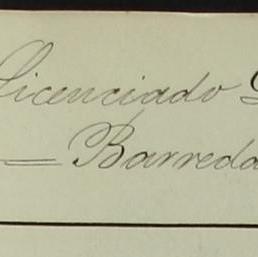 Licenciado
= Barreda